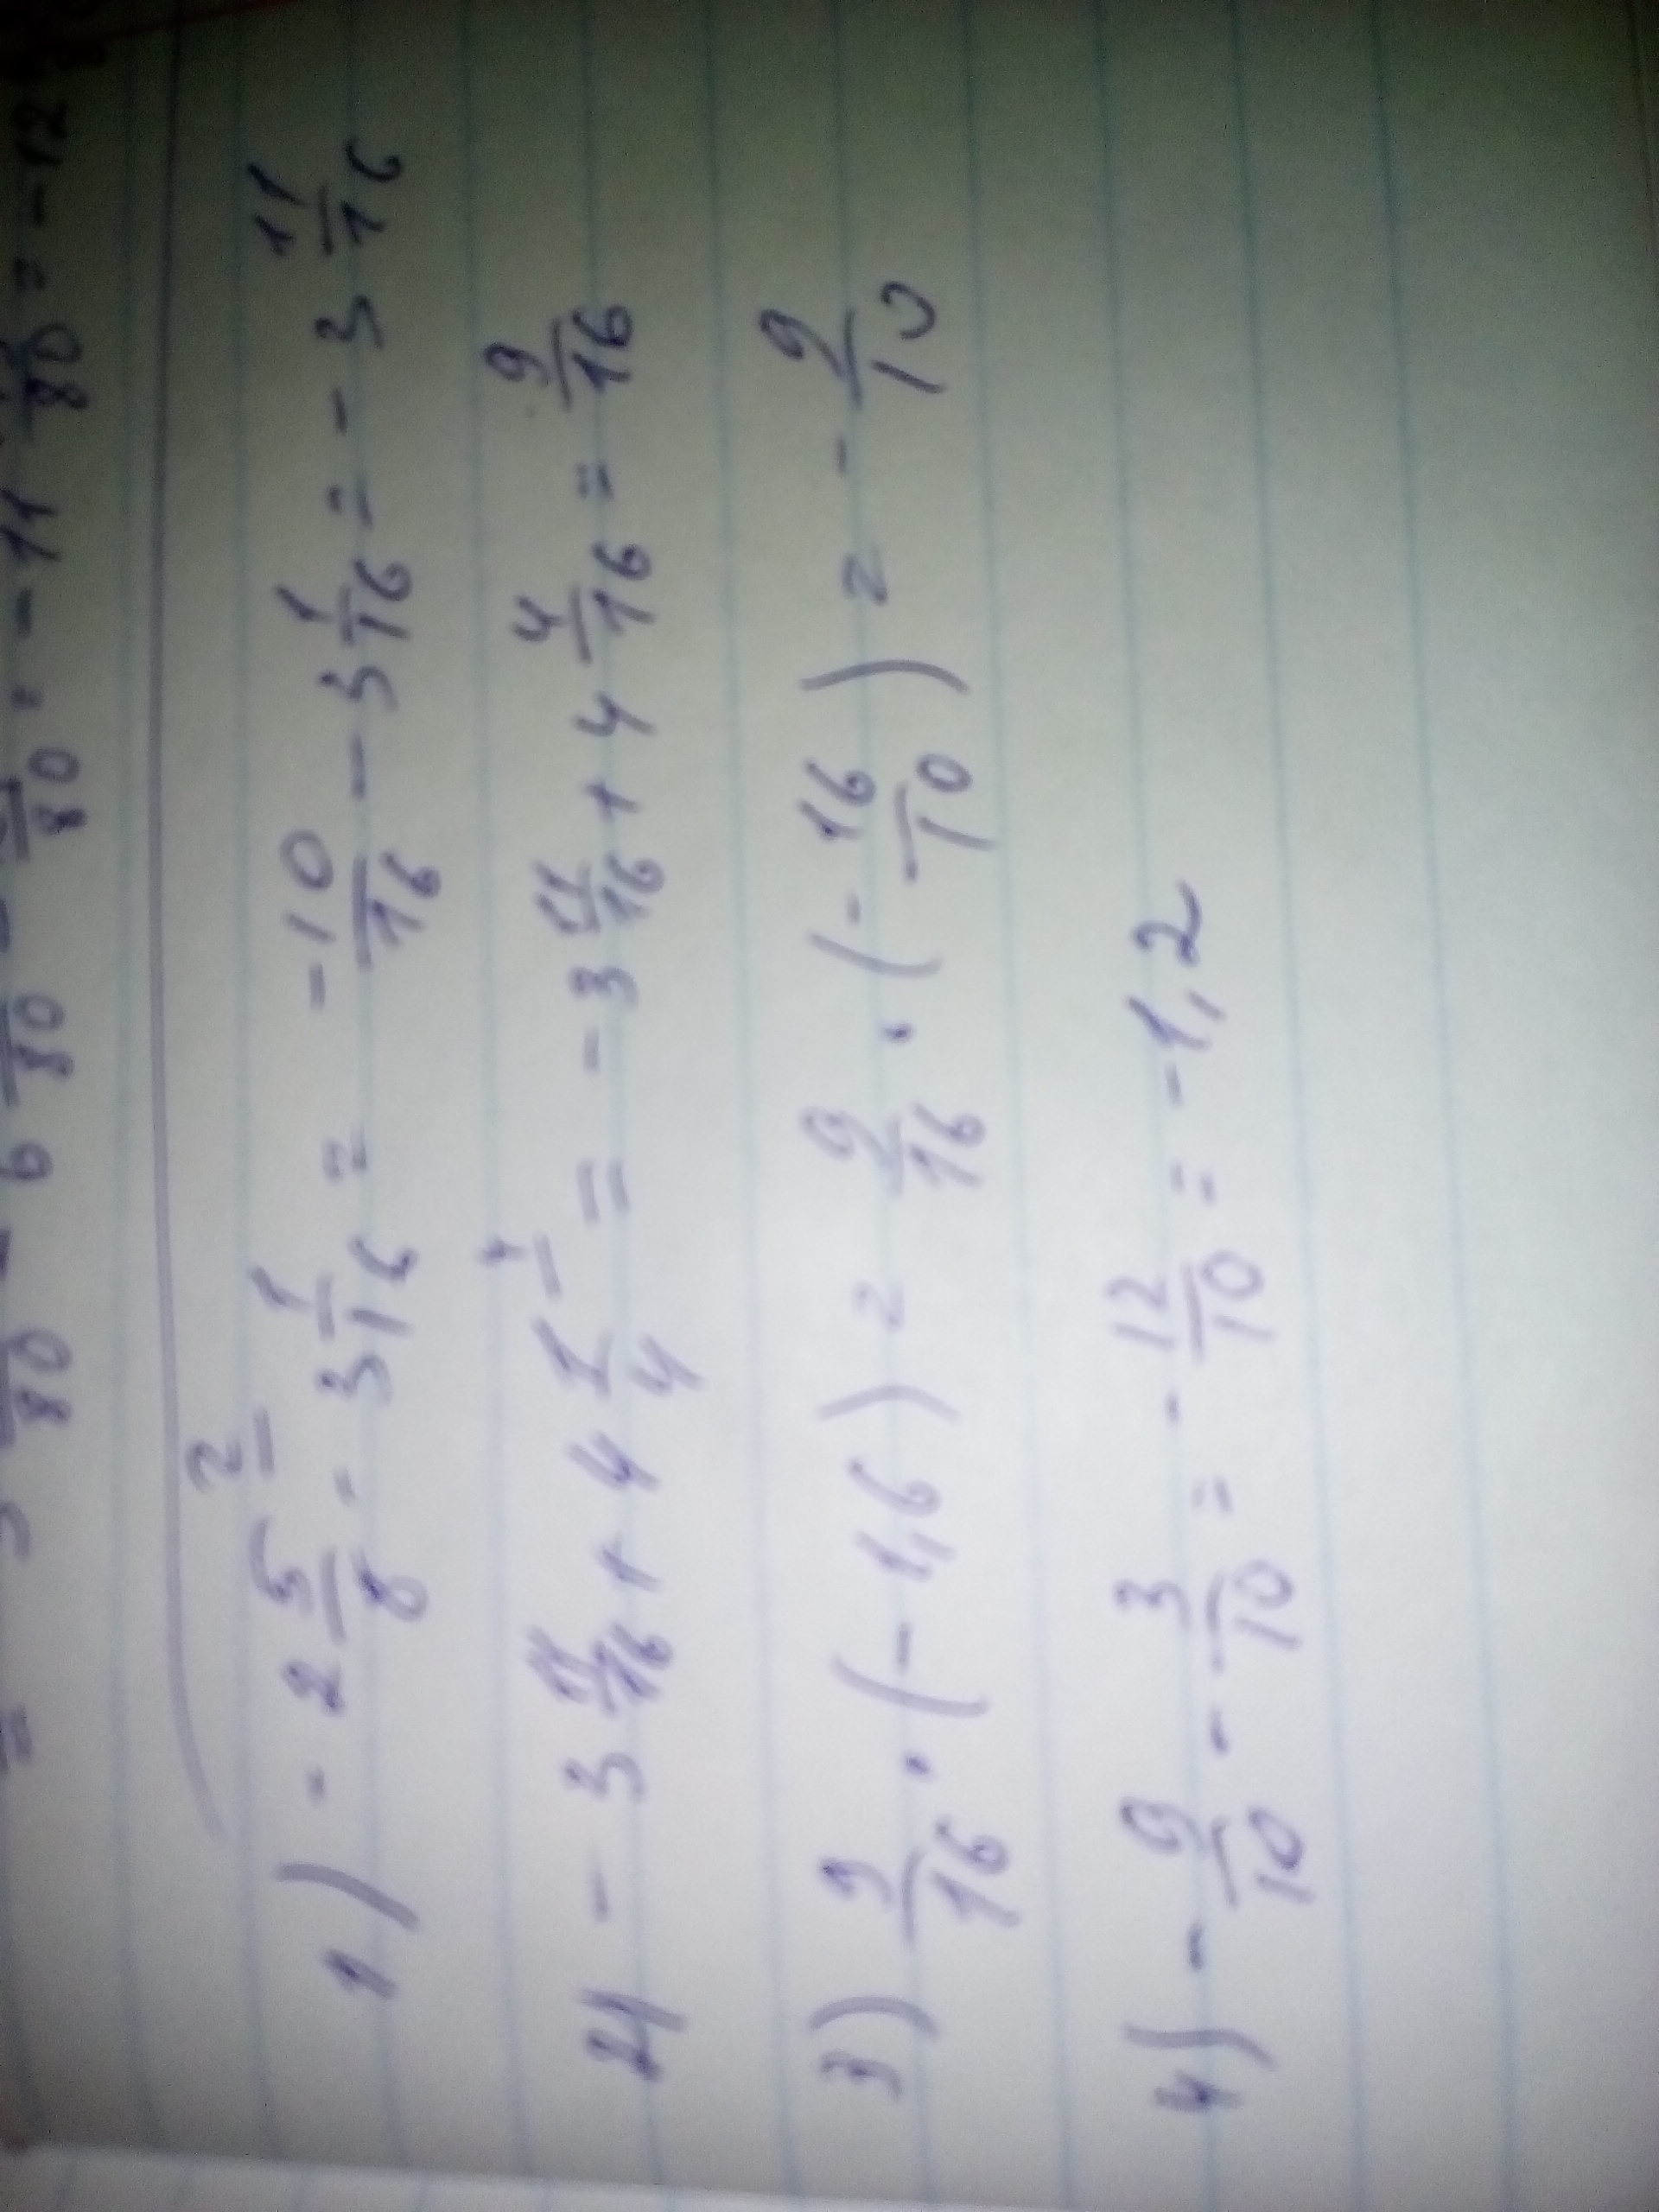 1) - 2 5/8 2/ - 3 1/16 = -10/16 - 3 1/16 = - 3 11/16
- 3 11/16 + 4 1/4 4/ = - 3 11/16 + 4 4/16 = 9/16
3) 9/16 · (- 1,6) = 9/16 · (- 16/10) = - 9/10
4) - 9/10 - 3/10 = - 12/10 = - 1,2